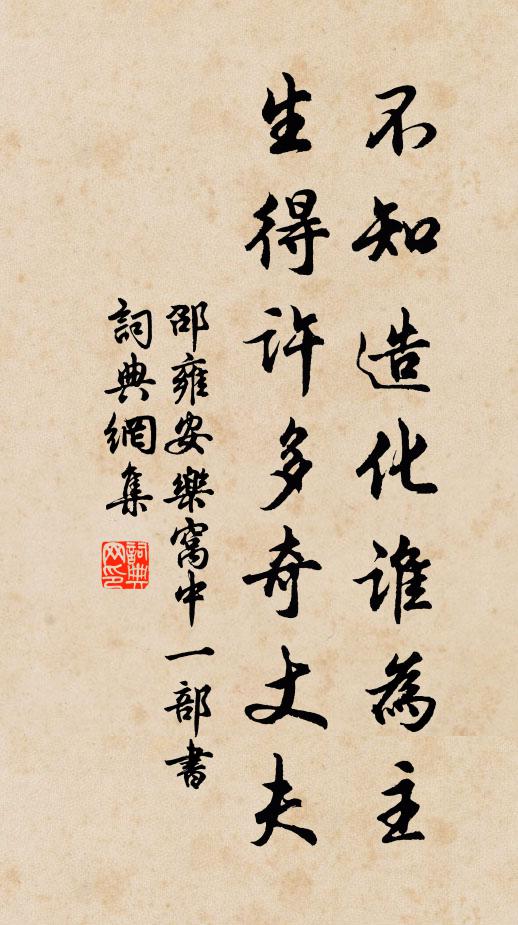 不知造化誰為主
生得許多奇丈夫
邵雍安樂窩中一部書
詞典網集
詞典網印